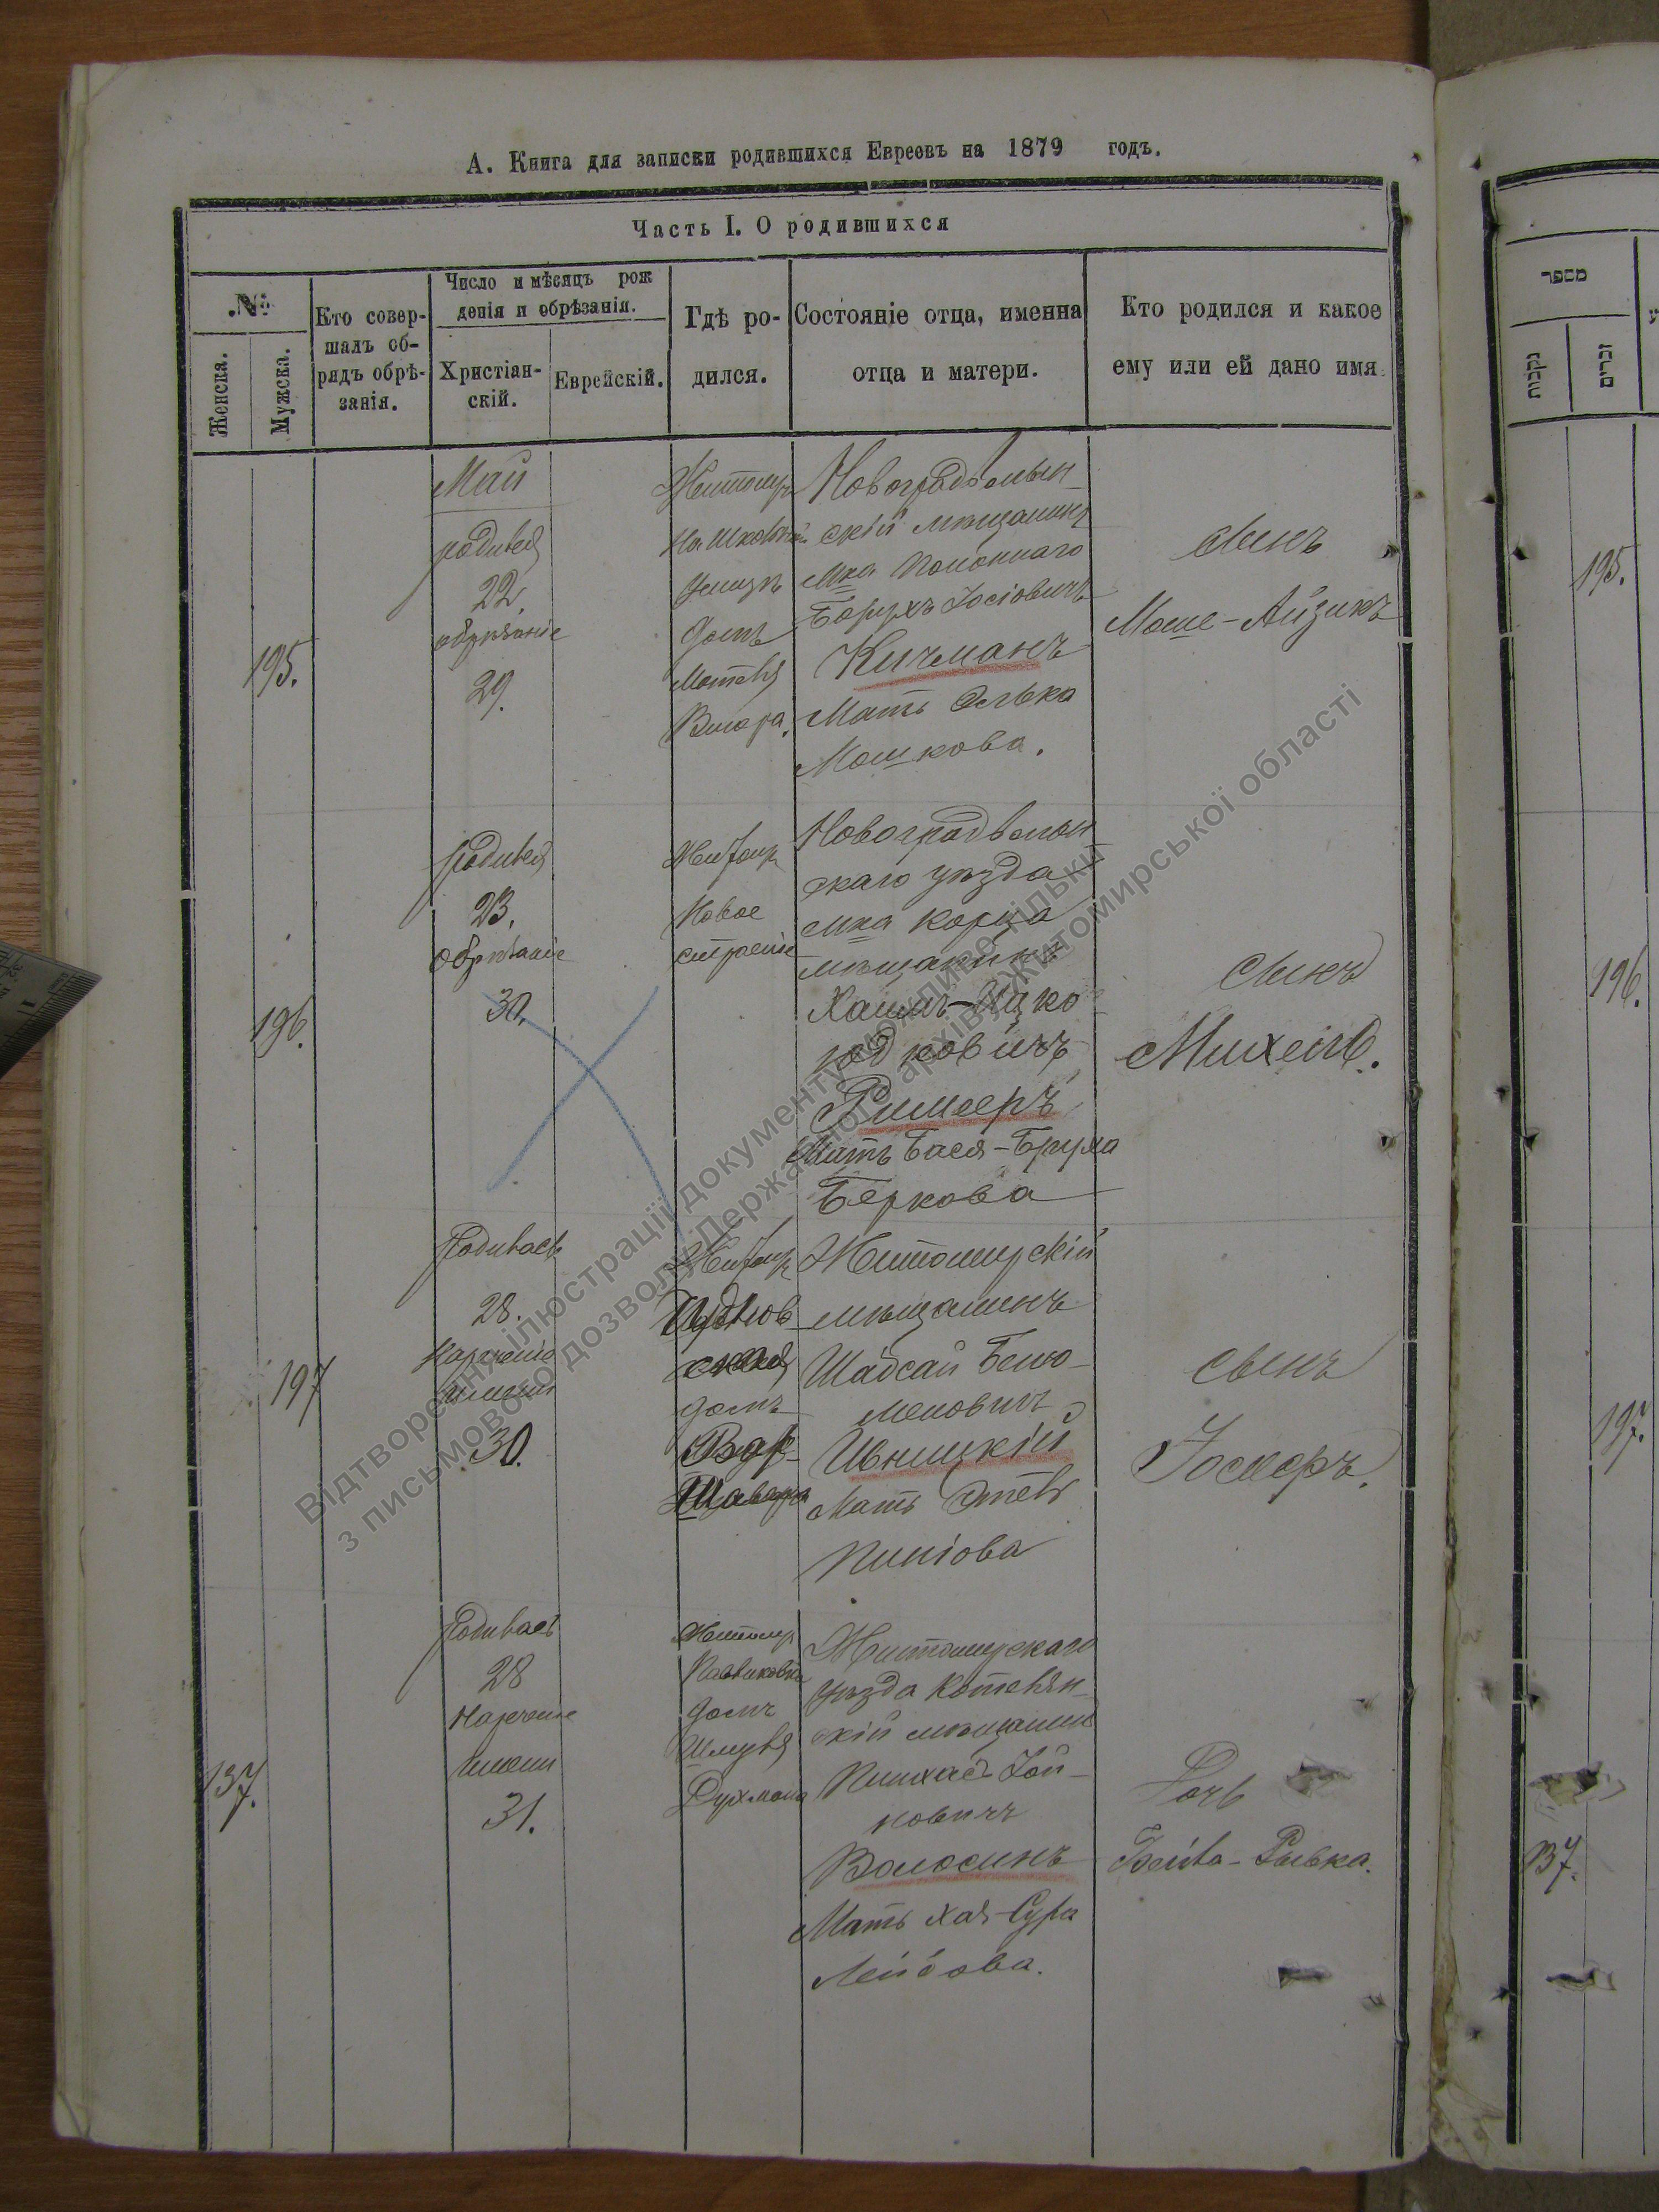 А. Книга для записки родившихся Евреевъ на 1879 годъ.
Часть I. О родившихся
№
Женска.
Мужска.
Кто совер-
шалъ об-
рядъ обрѣ-
занія.
Число и мѣсяцъ рож
денія и обрѣзанія.
Христіан-
скій.
Еврейскій.
Гдѣ ро-
дился.
Состояніе отца, именна
отца и матери.
Кто родился и какое
ему или ей дано имя
195.
Май
родився
22.
обрезаніе
29.
Житомір
улицѣ
домъ
Матвія
Новоградволын-
скій мѣщанинъ
мка Полоннаго
Борухъ Іосіовичъ
Кичманъ
Мать Элька
Мошкова.
сынъ
Моше-Айзикъ
196.
родився
23.
Обрезаніе
30.
Житомір
Новое
строеніе
Новоградволын
скаго уѣзда
мка Корца
мѣщанинъ
Хаимъ-Ицко
Римеръ
Мать Бася-Бруха
Беркова
сынъ
Михель.
197
Родивсь
28.
Нареченіе
имени
30.
Житомір
Чудков
ская
домъ
Житомирскій
мѣщанинъ
Шабсай Беню-
меновичъ
Ивницкій
Мать Этель
Пиніова
сынъ
Іосферъ.
137.
Родивсь
28
Нареченіе
имени
31.
Житомир
домъ
Шмуля
Житомирскаго
уѣзда Котельн-
скій мѣщанин
Пинхасъ Іой-
новичъ
Волосинъ
Мать Хая-Сура
Лейбова.
Дочь
Бейла-Рывка.
מספר
נקבות
זכרים
195.
196.
197.
137.
Відтворення ілюстрації документу можливо тільки
з письмового дозволу Державного архіву Житомирської області